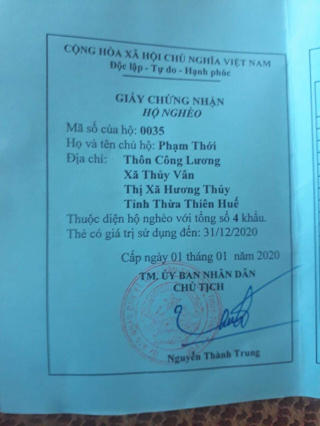 CỘNG HÒA XÃ HỘI CHỦ NGHĨA VIỆT NAM
Độc lập - Tự do - Hạnh phúc
GIẤY CHỨNG NHẬN
HỘ NGHÈO
Mã số của hộ: 0035
Họ và tên chủ hộ: Phạm Thới
Địa chỉ: Thôn Công Lương
Xã Thủy Vân
Thị Xã Hương Thủy
Tỉnh Thừa Thiên Huế
Thuộc diện hộ nghèo với tổng số 4 khẩu.
Thẻ có giá trị sử dụng đến: 31/12/2020
Cấp ngày 01 tháng 01 năm 2020
TM. ỦY BAN NHÂN DÂN
CHỦ TỊCH
Nguyễn Thành Trung